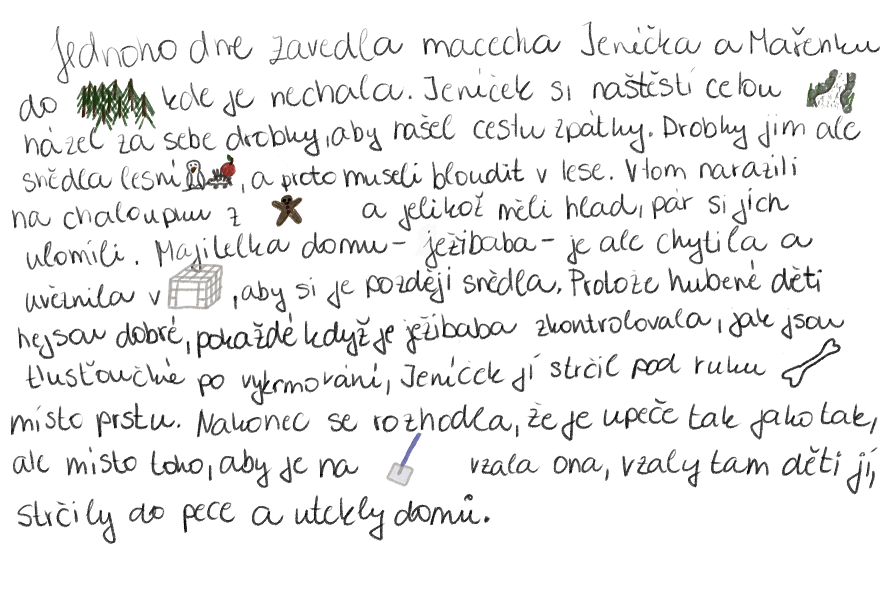 Jednoho dne zavedla macecha Jeníčka a Mařenku
do kde je nechala. Jeníček si naštěstí celou
házel za sebe drobky, aby našel cestu zpátky. Drobky jim ale
snědla lesní , a proto museli bloudit v lese. Vtom narazili
na chaloupku z a jelikož měli hlad, pár si jich
ulomili. Majitelka domu - ježibaba - je ale chytila a
uvěznila v , aby si je později snědla. Protože hubené děti
nejsou dobré, pokaždé když je ježibaba zkontrolovala, jak jsou
tlusťoučké po vykrmování, Jeníček jí strčil pod ruku
místo prstu. Nakonec se rozhodla, že je upeče tak jako tak,
ale místo toho, aby je na vzala ona, vzaly tam děti jí,
strčily do pece a utekly domů.